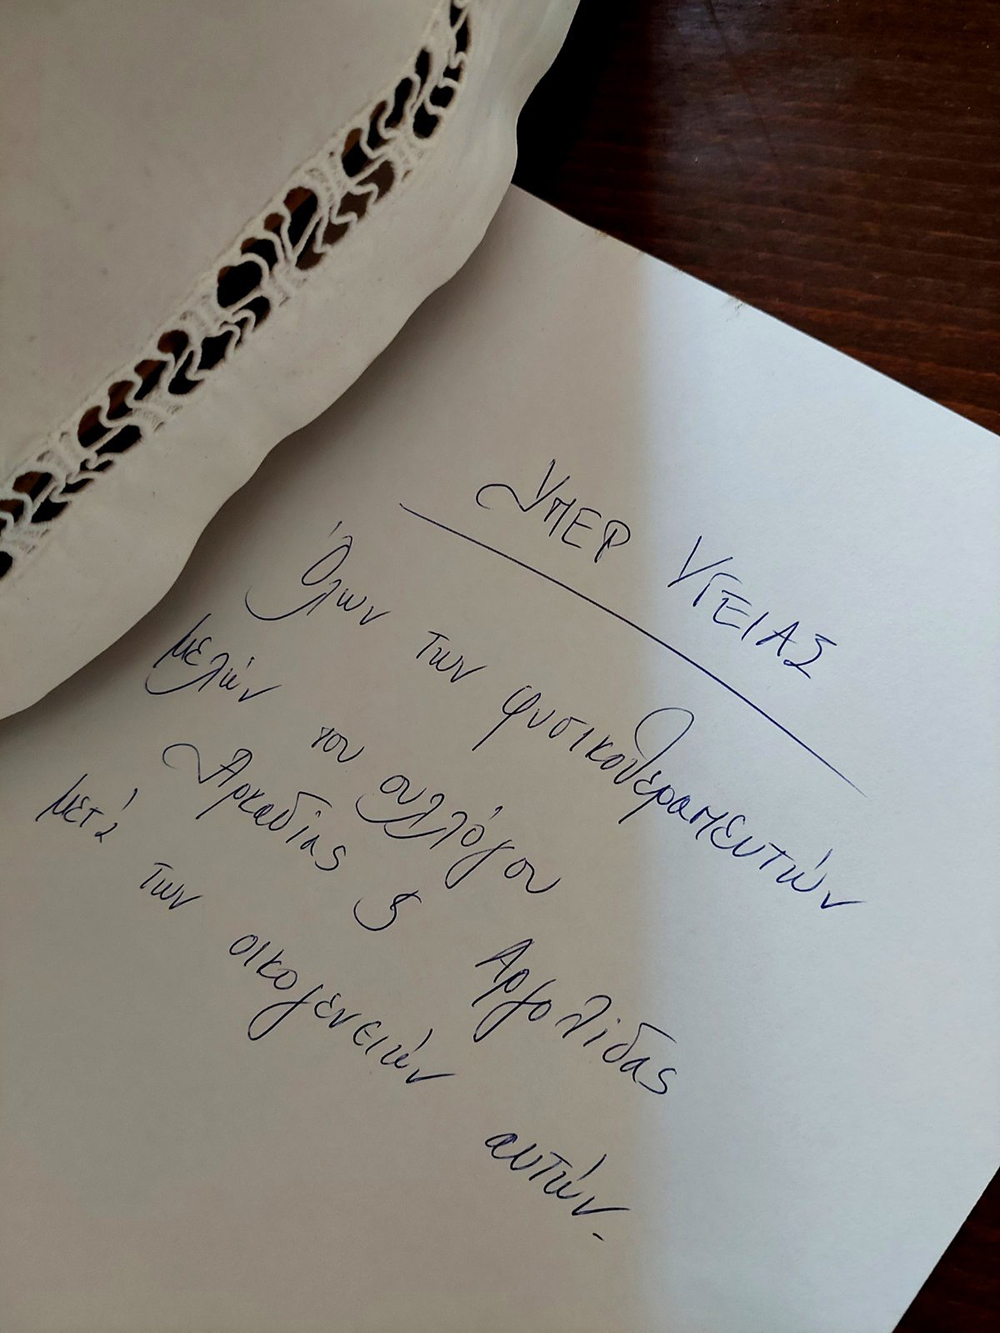 ΥΠΕΡ ΥΓΕΙΑΣ
Όλων των φυσικοθεραπευτών
μελών του συλλόγου
Αρκαδίας & Αργολίδας
μετά των οικογενειών αυτών.